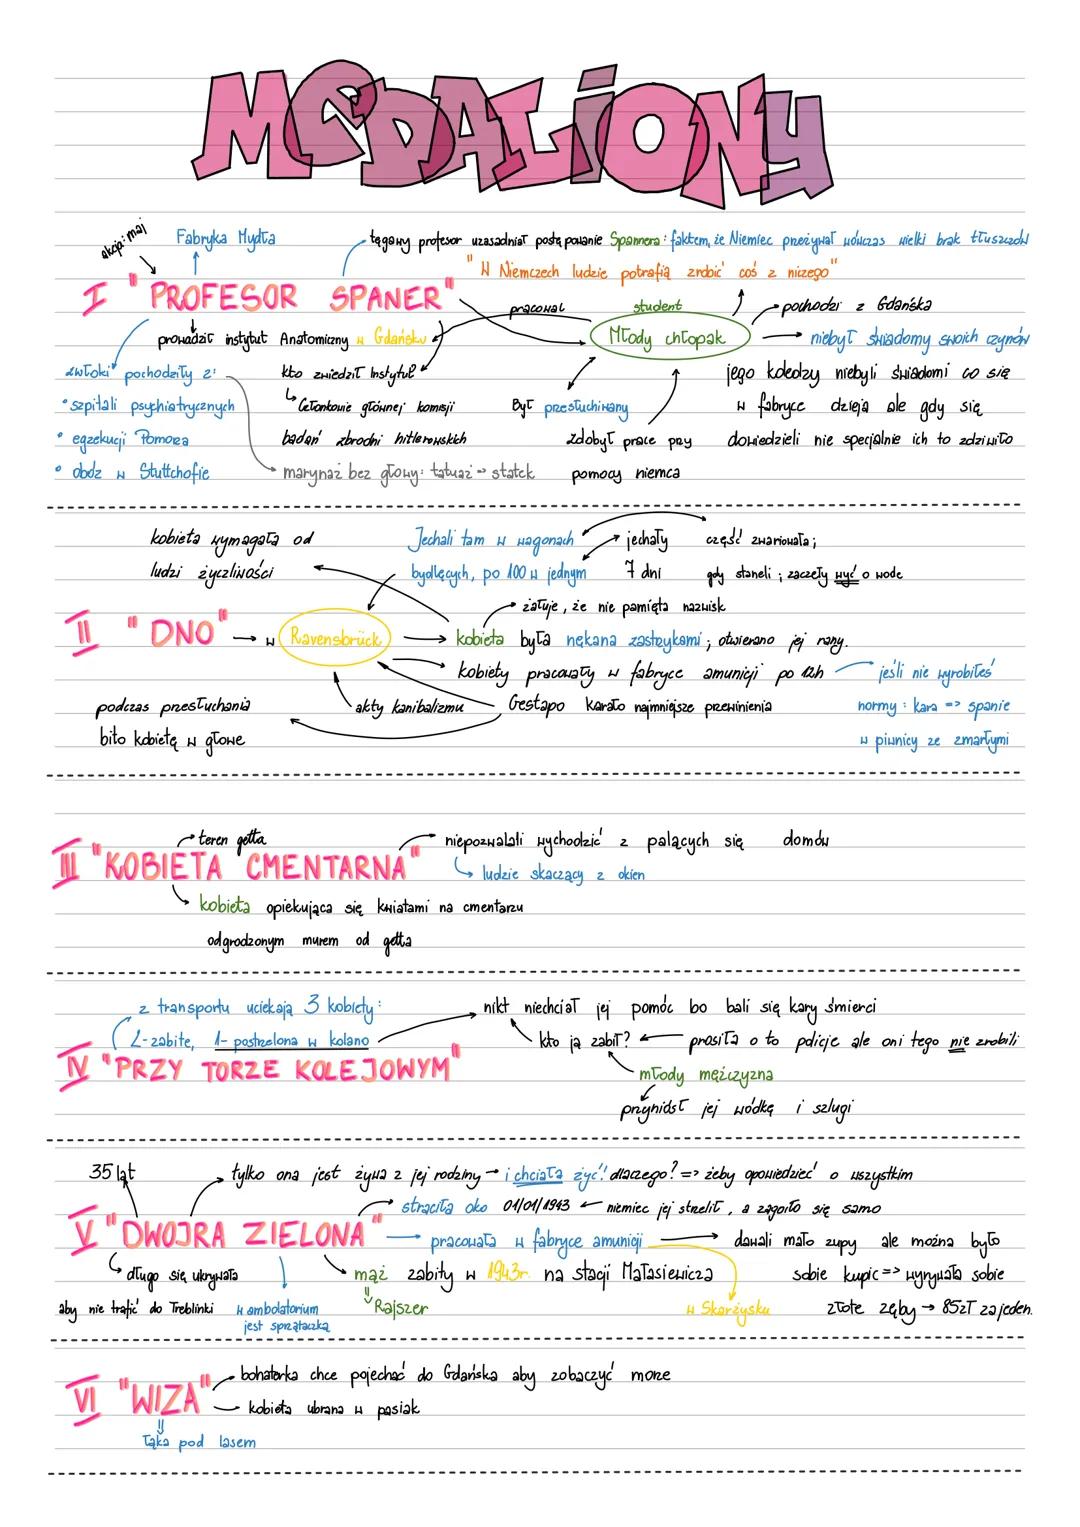 MEDALiONy
akcja: maj
Fabryka Mydła
tęgawy profesor uzasadniał postępowanie Spannera: faktem, że Niemiec przeżywał wówczas wielki brak tłuszczów
"W Niemczech ludzie potrafią zrobić coś z niczego"
I "PROFESOR SPANER"
pracował
student
pochodzi z Gdańska
prowadził instytut Anatomiczny w Gdańsku
Młody chłopak
niebył świadomy swoich czynów
zwłoki pochodziły z:
kto zwiedził Instytut?
jego koledzy niebyli świadomi co się
• szpitali psychiatrycznych
Członkowie głównej komisji
Był przesłuchiwany
w fabryce dzieją ale gdy się
• egzekucji Pomorza
badań zbrodni hitlerowskich
zdobył prace przy
dowiedzieli nie specjalnie ich to zdziwiło
• obóz w Stuttchofie
marynaż bez głowy: tatuaż → statek
pomocy niemca
kobieta wymagała od
Jechali tam w wagonach
jechały
część zwariowała;
ludzi życzliwości
bydlęcych, po 100 w jednym
7 dni
gdy staneli; zaczeły wyć o wode
żałuje, że nie pamięta nazwisk
II "DNO" → w Ravensbrück
kobieta była nękana zastrzykami; otwierano jej rany.
kobiety pracowały w fabryce amunicji po 12h
jeśli nie wyrobiłeś
podczas przesłuchania
akty kanibalizmu
Gestapo karało najmniejsze przewinienia
normy: kara => spanie
bito kobietę w głowe
w piwnicy ze zmarłymi
teren getta
niepozwalali wychodzić z palących się domów
III "KOBIETA CMENTARNA"
ludzie skaczący z okien
kobieta opiekująca się kwiatami na cmentarzu
odgrodzonym murem od getta
z transportu uciekają 3 kobiety:
nikt niechciał jej pomóc bo bali się kary śmierci
2-zabite, 1-postrzelona w kolano
kto ja zabił? ← prosiła o to policje ale oni tego nie zrobili
IV "PRZY TORZE KOLEJOWYM"
młody mężczyzna
przyniósł jej wódkę i szlugi
35 lat
tylko ona jest żywa z jej rodziny → i chciała żyć! dlaczego? => żeby opowiedzieć o wszystkim
straciła oko 01/01/1943 ← niemiec jej strzelił, a zagoiło się samo
V "DWOJRA ZIELONA"
pracowała w fabryce amunicji
dawali mało zupy ale można było
długo się ukrywała
mąż zabity w 1943r. na stacji Małasiewicza
sobie kupic => wyrywała sobie
aby nie trafić do Treblinki
w ambolatorium
Rajszer
w Skarżysku
złote zęby → 85zł za jeden.
jest sprzątaczką
bohaterka chce pojechać do Gdańska aby zobaczyć morze
VI "WIZA"
kobieta ubrana w pasiak
łąka pod lasem